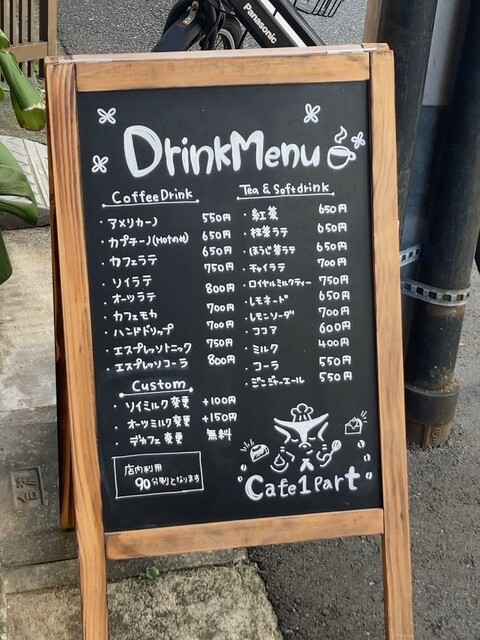 Panasonic
DrinkMenu
Coffee Drink
・アメリカーノ 550円
・カプチーノ(Hotのみ) 650円
・カフェラテ 650円
・ソイラテ 750円
・オーツラテ 800円
・カフェモカ 700円
・ハンドドリップ 700円
・エスプレッソトニック 750円
・エスプレッソコーラ 800円
Custom
・ソイミルク変更 +100円
・オーツミルク変更 +150円
・デカフェ変更 無料
店内利用
90分制となります
Tea & Softdrink
・紅茶 650円
・抹茶ラテ 650円
・ほうじ茶ラテ 650円
・チャイラテ 700円
・ロイヤルミルクティー 750円
・レモネード 650円
・レモンソーダ 700円
・ココア 600円
・ミルク 400円
・コーラ 550円
・ジンジャーエール 550円
Cafe1Part